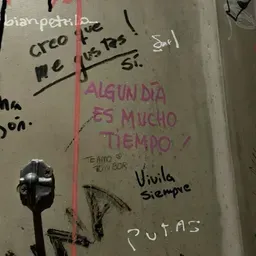 bianpetula
creo que !
me gustas
sí.
Sol
ALGUN DÍA
ES MUCHO
TIEMPO
TE AMO
Vivila
siempre
PUTAS